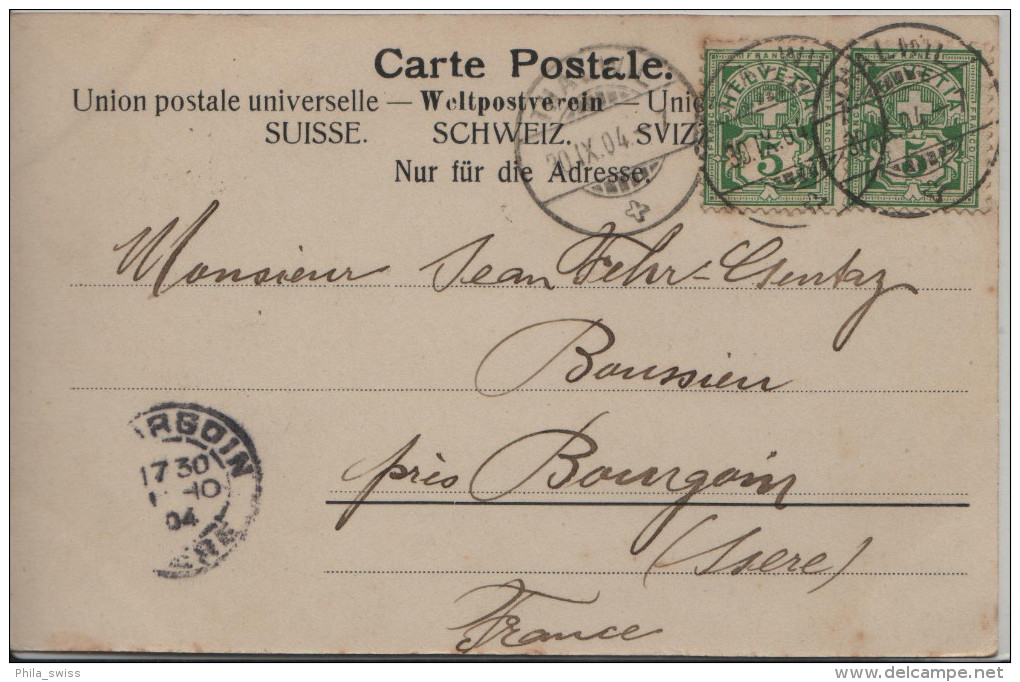 Carte Postale.
Union postale universelle — Weltpostverein — Unio
SUISSE. SCHWEIZ. SVIZ
Nur für die Adresse.
30.IX.04
HELVETIA
5
30.IX.04
HELVETIA
5
Monsieur Jean Fehr-Gentaz
Boussieu
près Bourgoin
(Isère)
France
RGOIN
17 30
10
04
ERE
Phila_swiss
www.delcampe.net